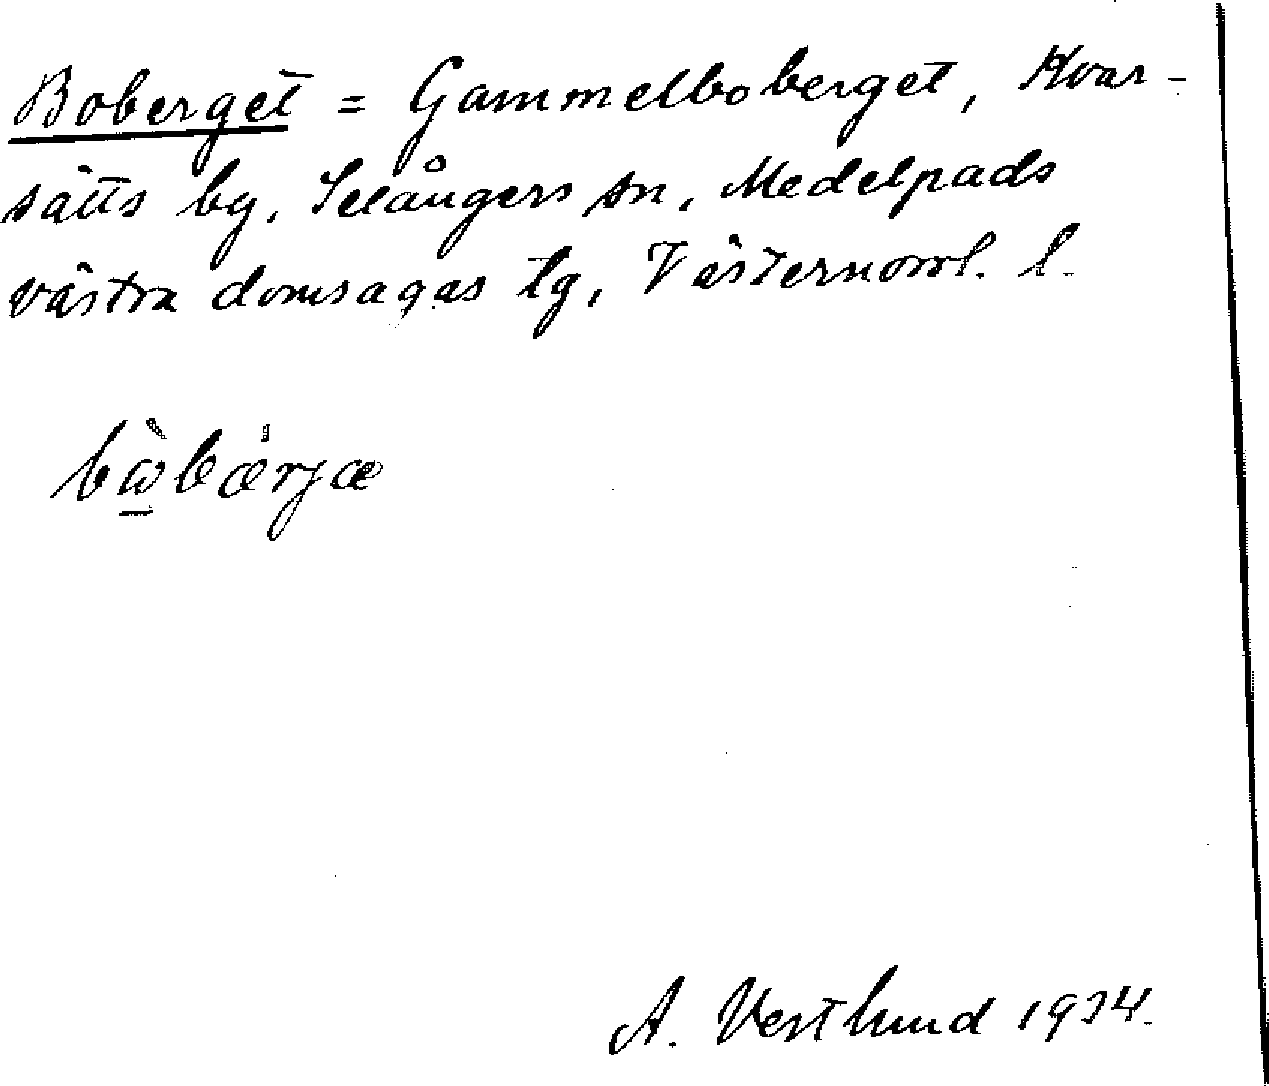 Boberget = Gammelboberget, Kvar-
sätts by, Selångers sn, Medelpads
västra domsagas tg, Västernorrl. l.
bὼ̲bæ̍rjæ
A. Vestlund 1934.